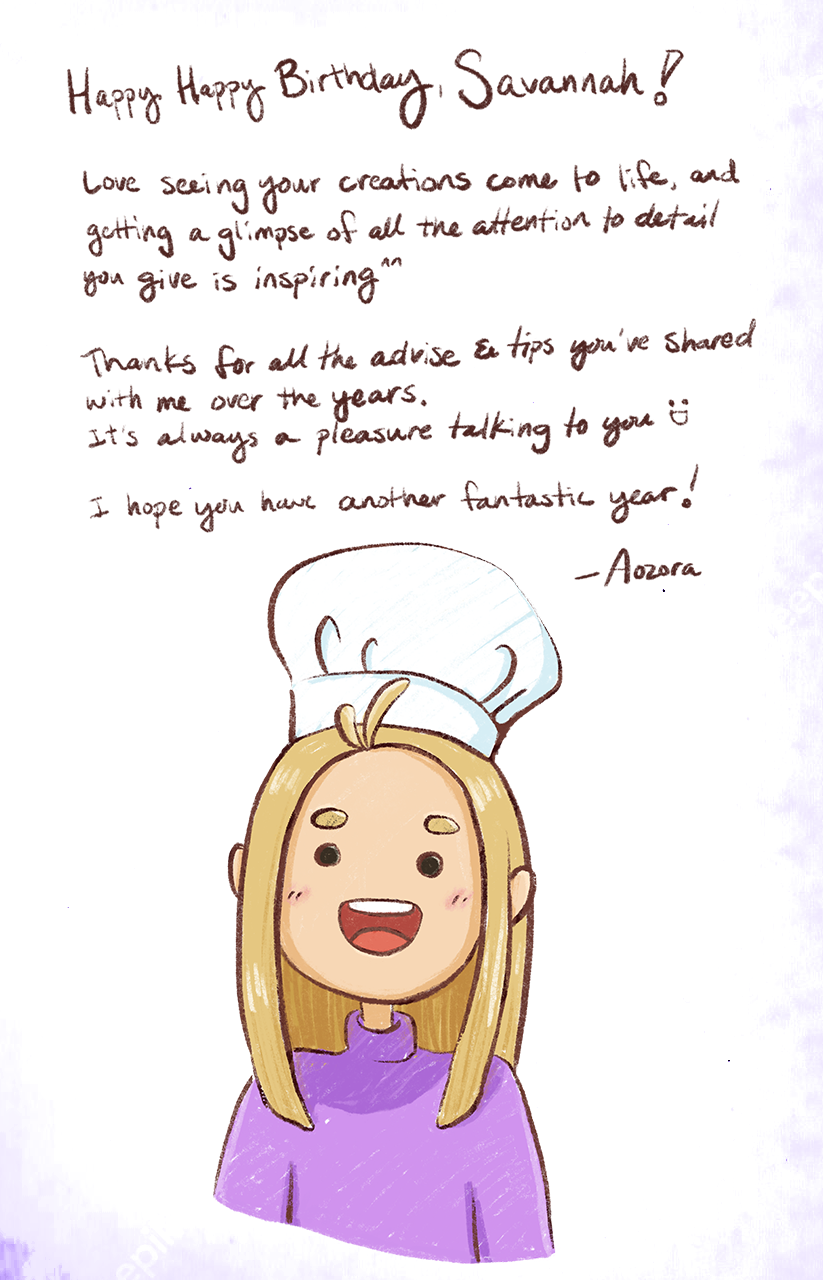 Happy Happy Birthday, Savannah!
Love seeing your creations come to life, and
getting a glimpse of all the attention to detail
you give is inspiring^^
Thanks for all the advise & tips you've shared
with me over the years.
It's always a pleasure talking to you :D
I hope you have another fantastic year!
—Aozora